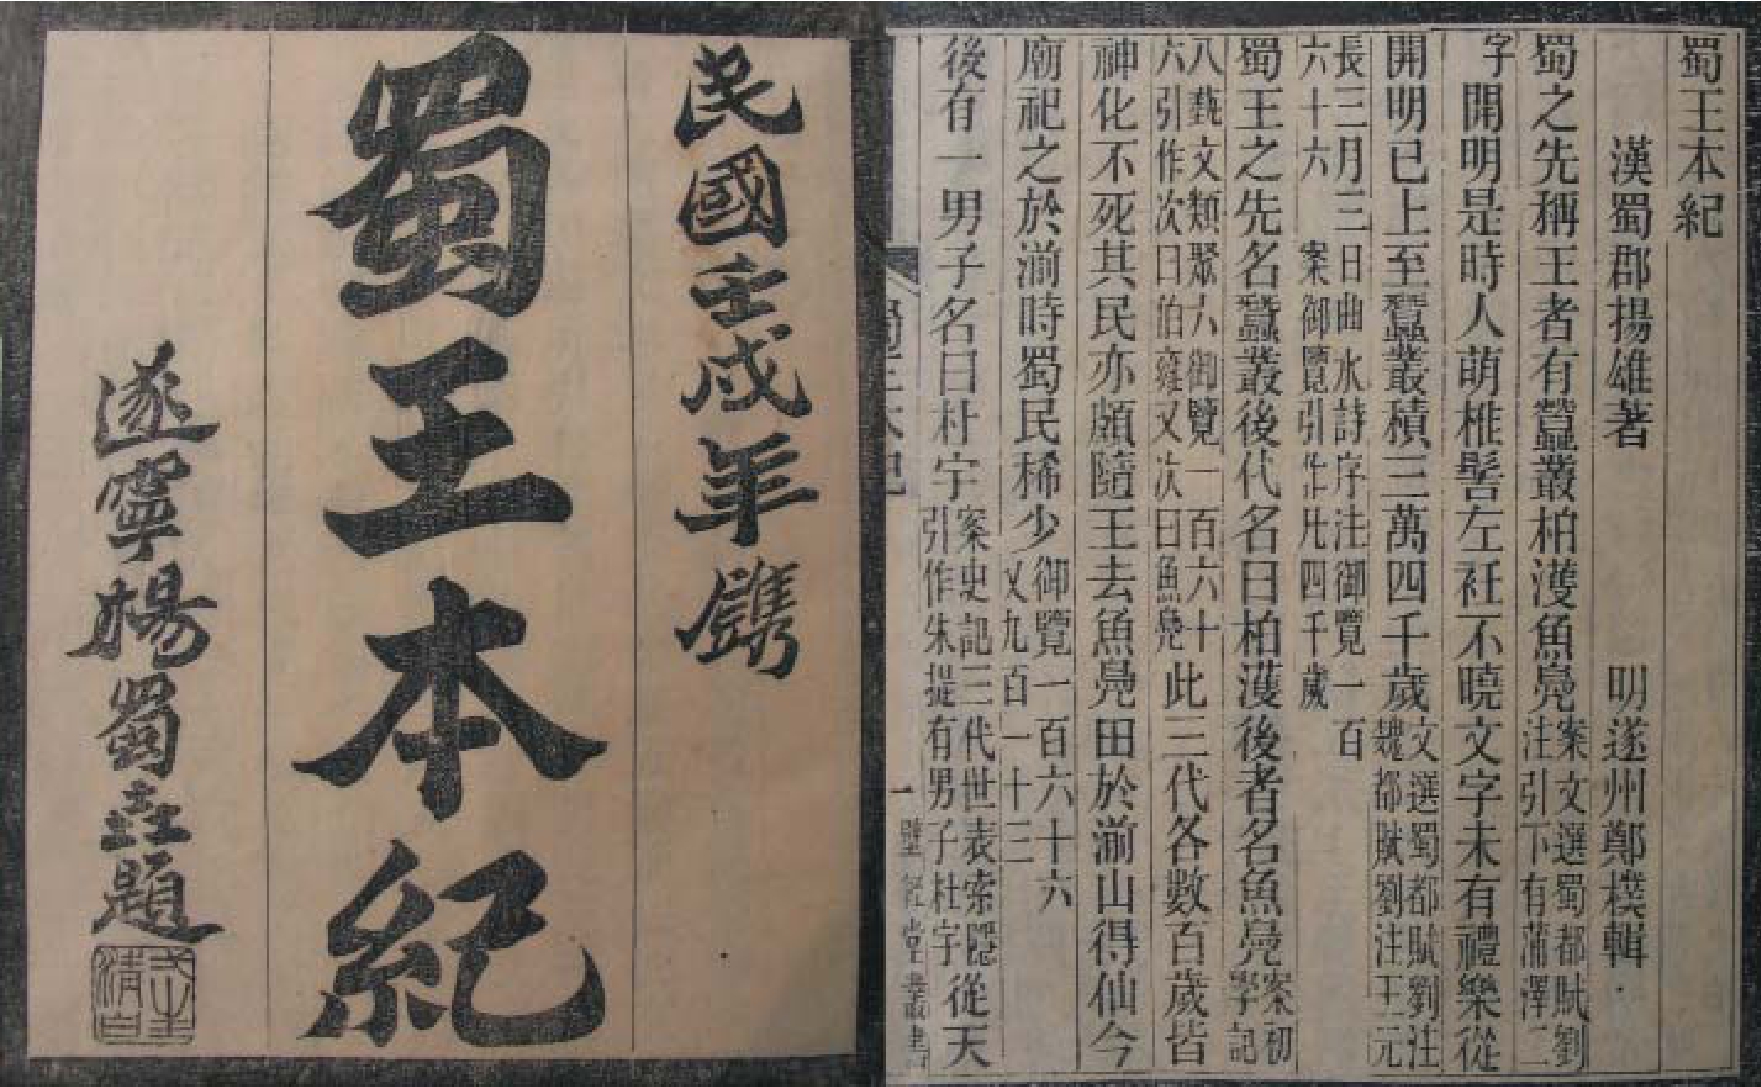 民國壬戌年鐫
蜀王本紀
遂寧楊蜀題
蜀王本紀
漢蜀郡揚雄著 明遂州鄭樸輯
蜀之先稱王者有蠶叢柏濩魚鳧案文選蜀都賦劉注引下有蒲澤二
字開明是時人萌椎髻左衽不曉文字未有禮樂從
開明已上至蠶叢積三萬四千歲文選蜀都賦劉注魏都賦劉注王元
長三月三日曲水詩序注御覽一百六十六 案御覽引作凡四千歲
蜀王之先名蠶叢後代名曰柏濩後者名魚鳧案初學記
八藝文類聚六御覽一百六十六引作次曰伯雍又次曰魚鳧此三代各數百歲皆
神化不死其民亦頗隨王去魚鳧田於湔山得仙今
廟祀之於湔時蜀民稀少御覽一百六十六又九百一十三
後有一男子名曰杜宇案史記三代世表索隱引作朱提有男子杜宇從天
蜀王本紀 一